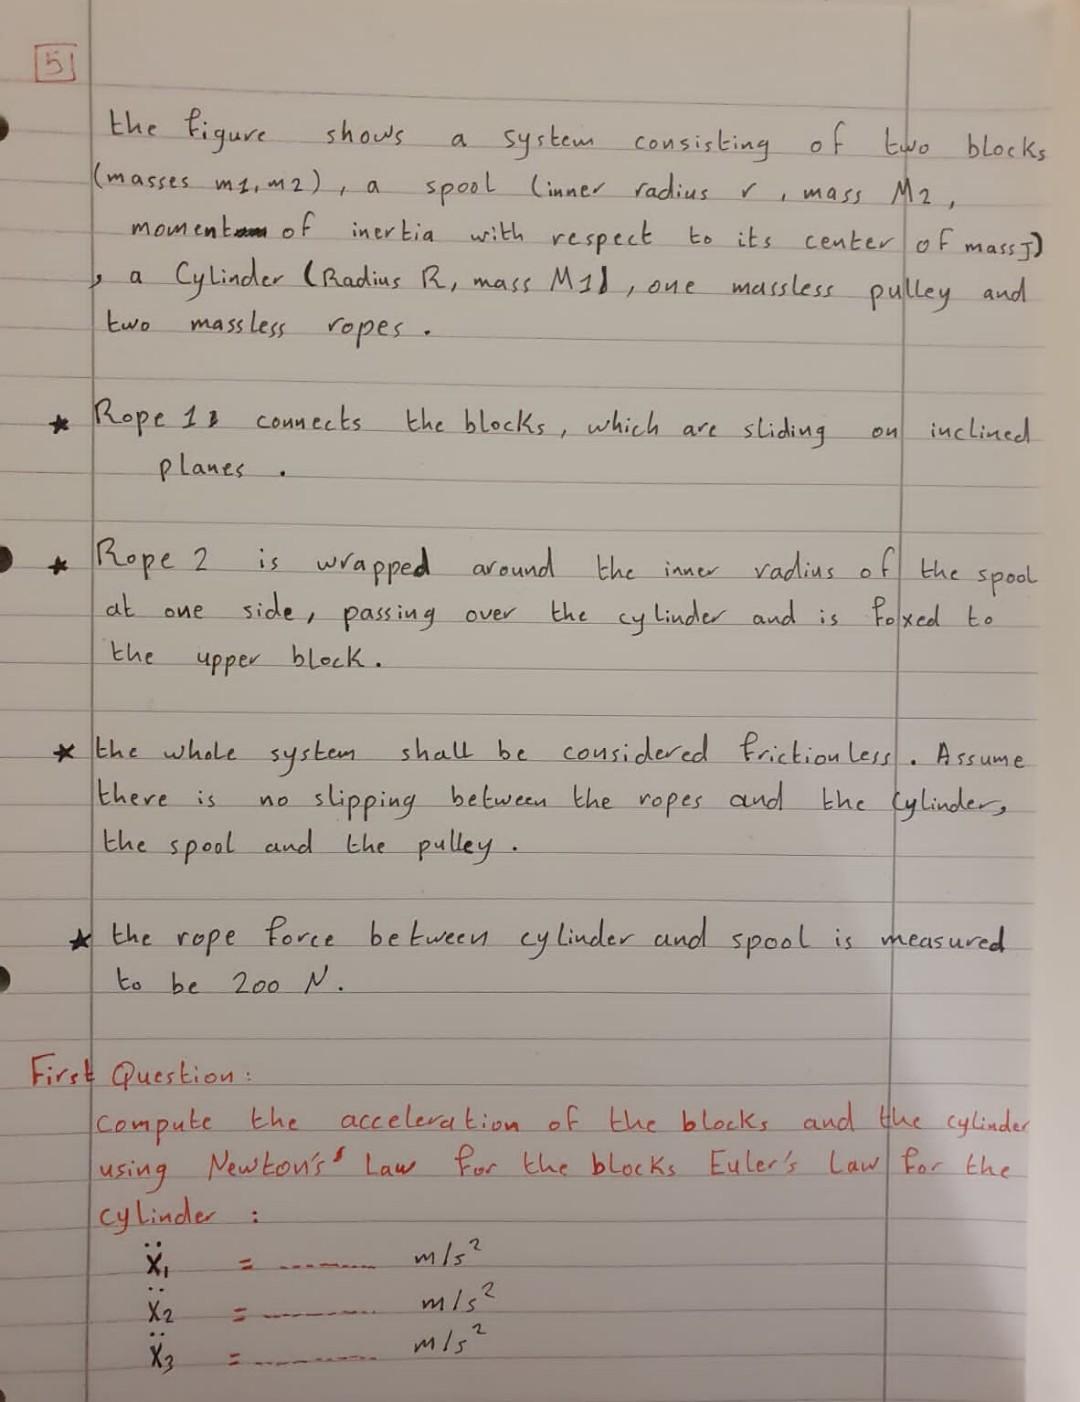 5
the figure shows a system consisting of two blocks
(masses m1, m2), a spool (inner radius r, mass M2,
moment of inertia with respect to its center of mass J)
, a Cylinder (Radius R, mass M1), one massless pulley and
two massless ropes.
* Rope 1: connects the blocks, which are sliding on inclined
planes.
* Rope 2 is wrapped around the inner radius of the spool
at one side, passing over the cylinder and is foxed to
the upper block.
* the whole system shall be considered frictionless. Assume
there is no slipping between the ropes and the Cylinders,
the spool and the pulley.
* the rope force between cylinder and spool is measured
to be 200 N.
First Question:
compute the acceleration of the blocks and the cylinder
using Newton's Law for the blocks Euler's Law for the
cylinder :
Ẍ₁ = ........ m/s²
Ẍ₂ = ........ m/s²
Ẍ₃ = ........ m/s²